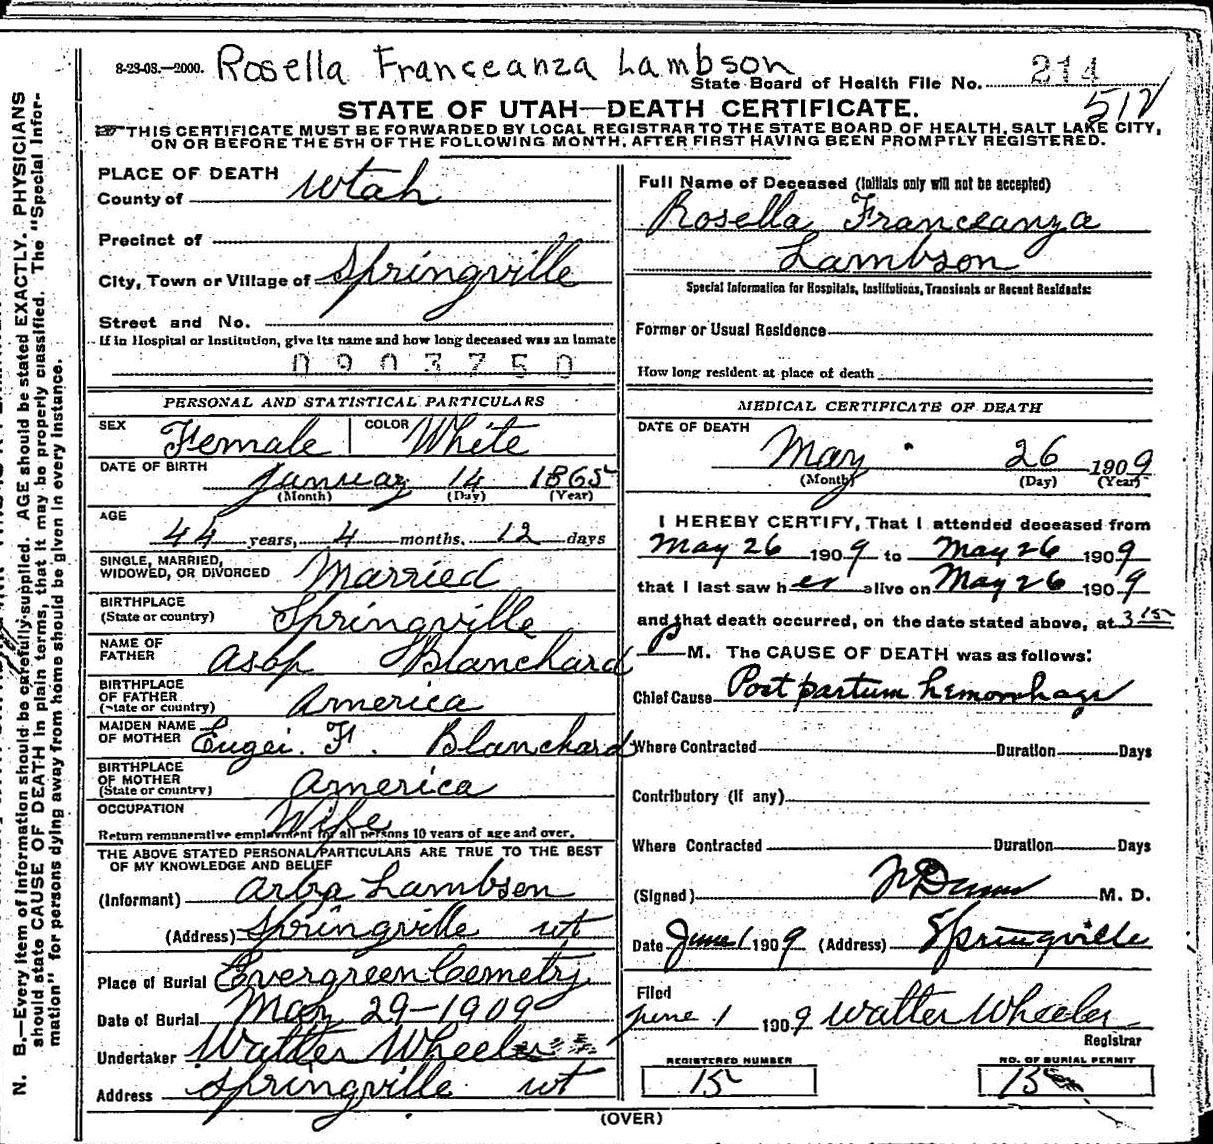 8-23-08.—2000. Rosella Franceanza Lambson
State Board of Health File No. 214
512
STATE OF UTAH—DEATH CERTIFICATE.
THIS CERTIFICATE MUST BE FORWARDED BY LOCAL REGISTRAR TO THE STATE BOARD OF HEALTH, SALT LAKE CITY,
ON OR BEFORE THE 5TH OF THE FOLLOWING MONTH, AFTER FIRST HAVING BEEN PROMPTLY REGISTERED.
PLACE OF DEATH
County of Utah
Precinct of
City, Town or Village of Springville
Street and No.
If in Hospital or Institution, give its name and how long deceased was an inmate
0903750
PERSONAL AND STATISTICAL PARTICULARS
SEX Female COLOR White
DATE OF BIRTH
January 14 1865
(Month) (Day) (Year)
AGE
44 years, 4 months, 12 days
SINGLE, MARRIED,
WIDOWED, OR DIVORCED Married
BIRTHPLACE
(State or country) Springville
NAME OF
FATHER Asop Blanchard
BIRTHPLACE
OF FATHER
(State or country) America
MAIDEN NAME
OF MOTHER Eugei. F. Blanchard
BIRTHPLACE
OF MOTHER
(State or country) America
OCCUPATION
Wife
Return remunerative employment for all persons 10 years of age and over.
THE ABOVE STATED PERSONAL PARTICULARS ARE TRUE TO THE BEST
OF MY KNOWLEDGE AND BELIEF
(Informant) Arba Lambson
(Address) Springville ut
Place of Burial Evergreen Cemetry
Date of Burial May 29-1909
Undertaker Walter Wheeler
Address Springville ut
Full Name of Deceased (Initials only will not be accepted)
Rosella Franceanza
Lambson
Special Information for Hospitals, Institutions, Transients or Recent Residents:
Former or Usual Residence
How long resident at place of death
MEDICAL CERTIFICATE OF DEATH
DATE OF DEATH
May 26 1909
(Month) (Day) (Year)
I HEREBY CERTIFY, That I attended deceased from
May 26 1909 to May 26 1909
that I last saw her alive on May 26 1909
and that death occurred, on the date stated above, at 3 15
P M. The CAUSE OF DEATH was as follows:
Chief Cause Post partum hemorrhage
Where Contracted Duration Days
Contributory (if any)
Where Contracted Duration Days
(Signed) M. D.
Date June 1 1909 (Address) Springville
Filed
June 1 1909 Walter Wheeler
Registrar
REGISTERED NUMBER
15
NO. OF BURIAL PERMIT
15
(OVER)
N. B.—Every item of information should be carefully supplied. AGE should be stated EXACTLY. PHYSICIANS
should state CAUSE OF DEATH in plain terms, that it may be properly classified. The "Special Infor-
mation" for persons dying away from home should be given in every instance.